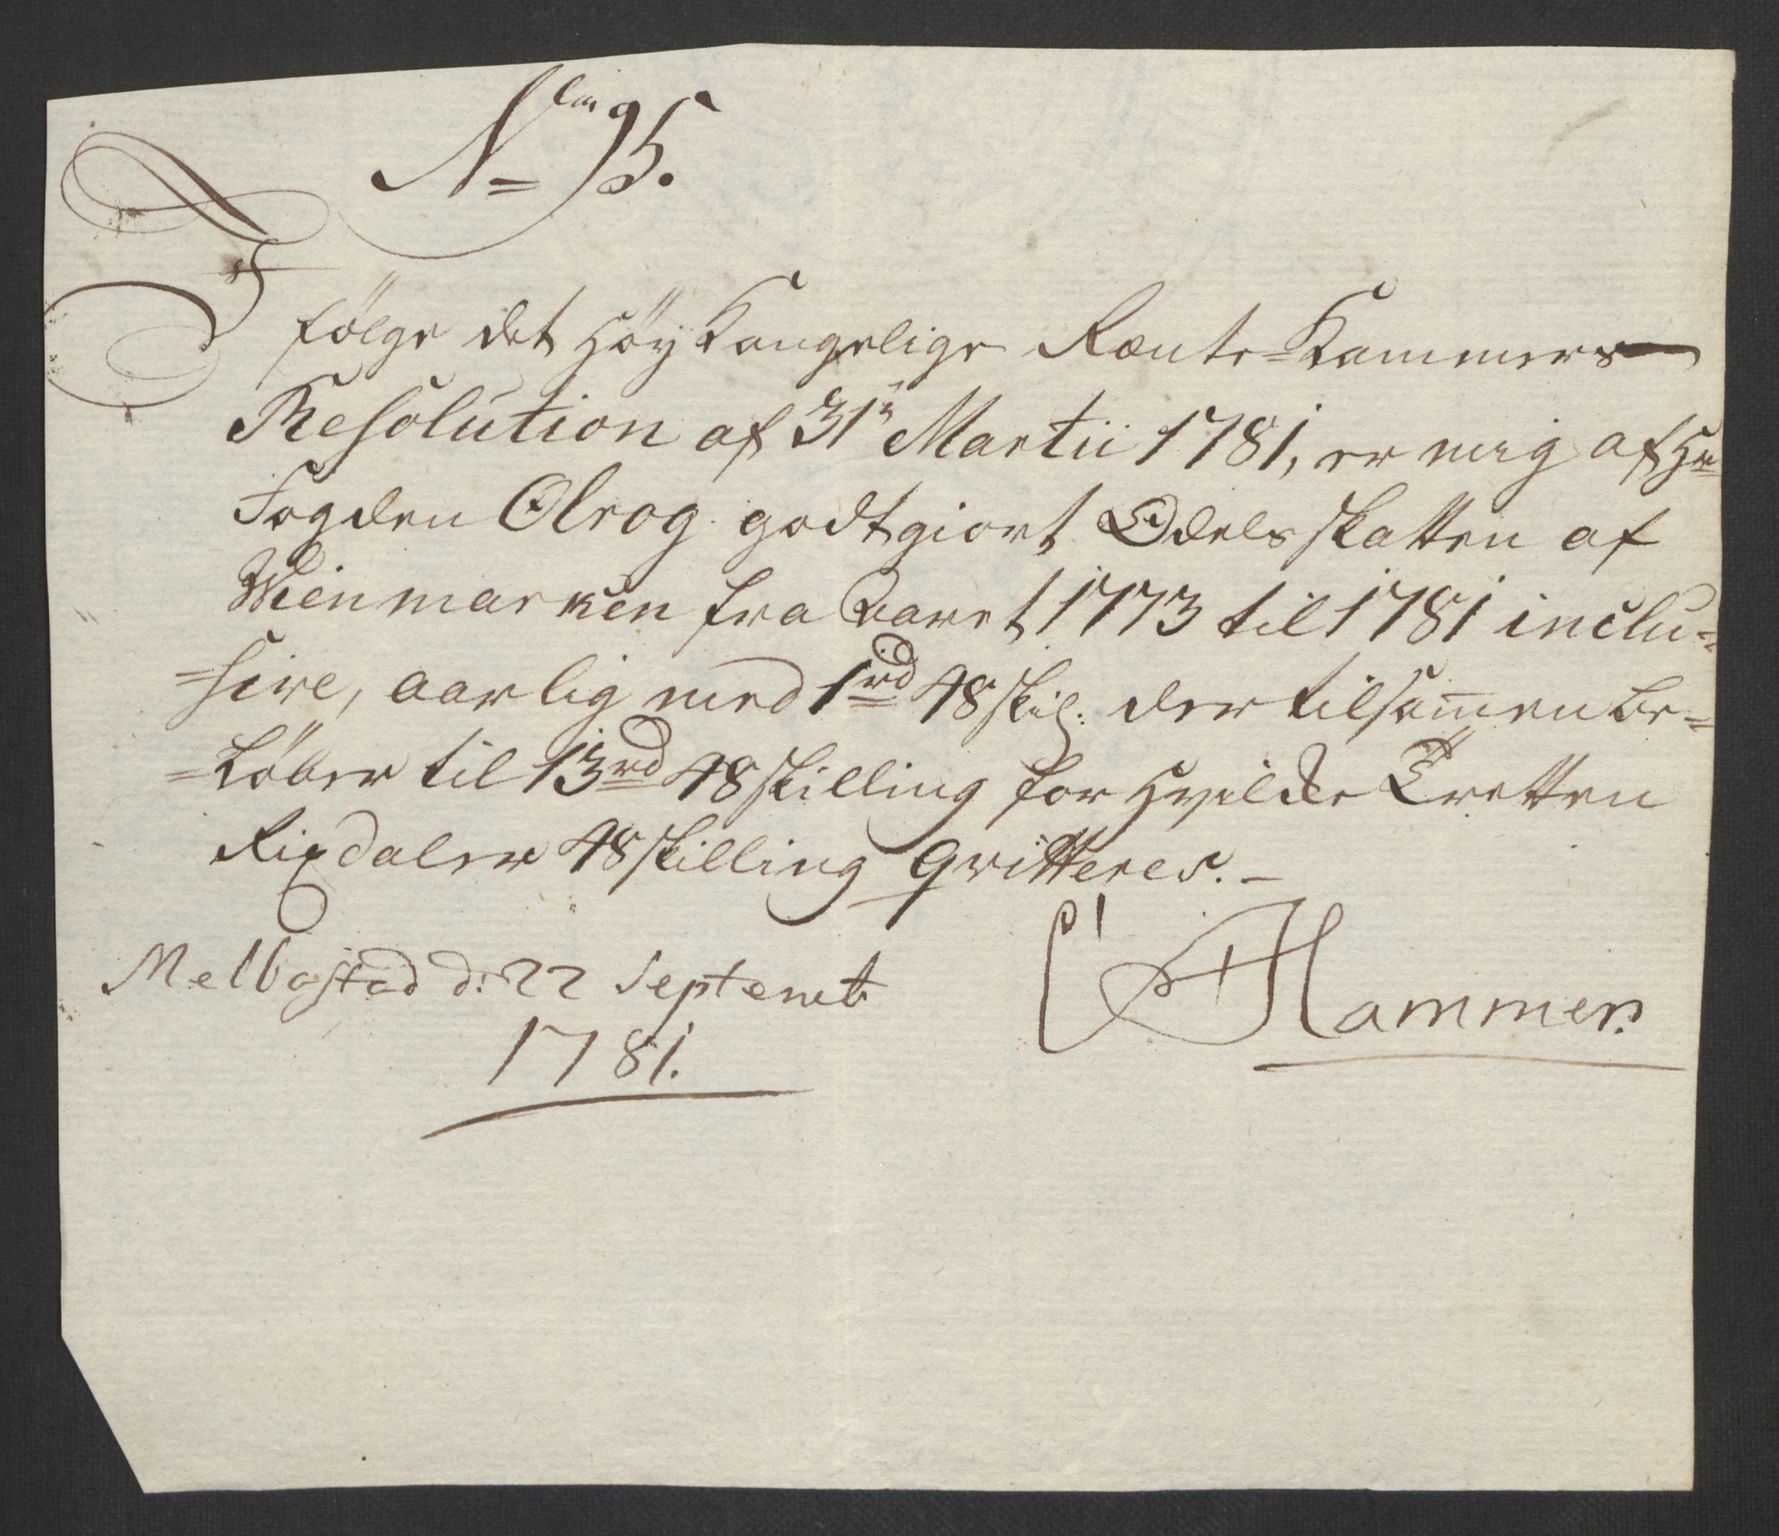 Lm
No 95.
I
følge det Høy Kongelige Rænte=Kammers
Resolution af 31te Martii 1781, er mig af Hr
Fogden Olrog godtgiort Odels skatten af
Meinmarken fra Aaret 1773 til 1781 inclu=
=sive, aarlig med 1rd 48 skil: der tilsam̄en be=
=løber til 13rd 48 skilling for Hvilcke Tretten
Rixdaler 48 skilling qvitteres. –
Melbostad d: 22 Septemb:
1781.
C Hammer.